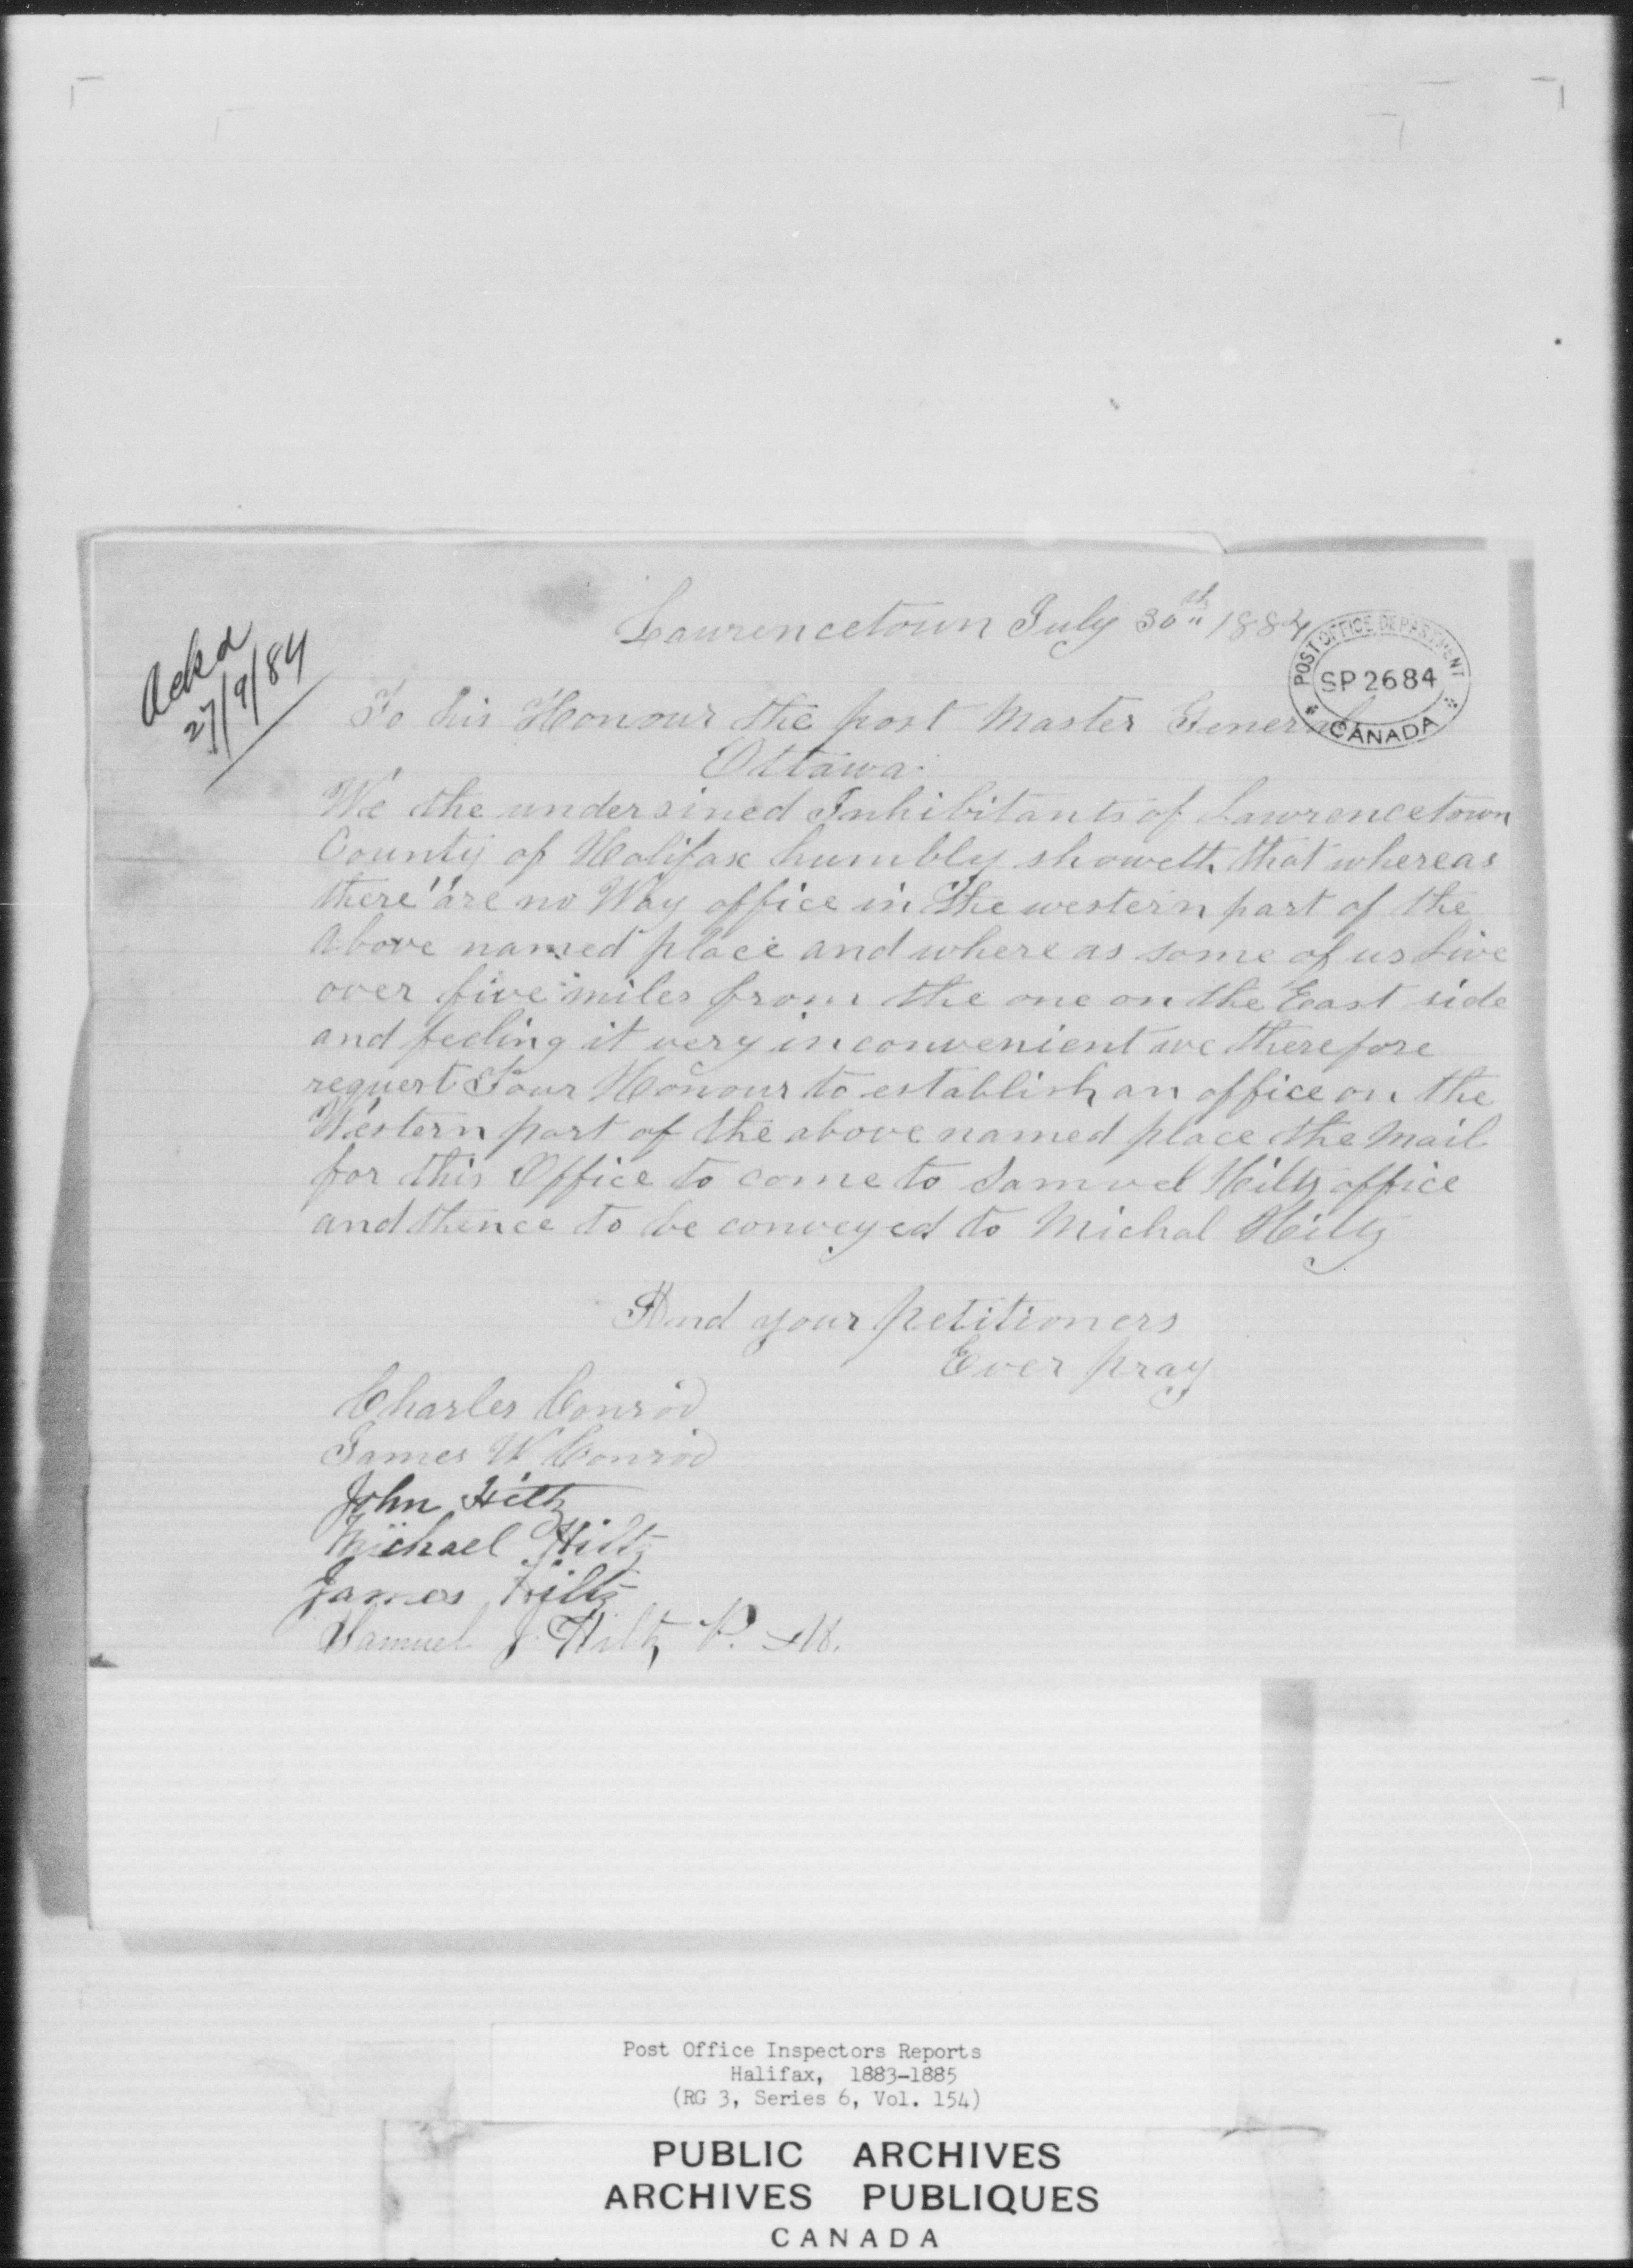 Lawrencetown July 30th 1884
Ackd
27/9/84
POST OFFICE DEPARTMENT
SP 26 84
CANADA
To his Honour the post Master General
Ottawa.
We the undersined Inhibitants of Lawrencetown
County of Halifax humbly showeth that whereas
there are no Way office in the western part of the
above named place and where as some of us Live
over five miles from the one on the East side
and feeling it very inconvenient we therefore
request Your Honour to establish an office on the
Western part of the above named place the Mail
for this Office to come to Samuel Hiltz office
and thence to be conveyed to Michal Hiltz
And your petitioners
Ever pray
Charles Conrod
James W Conrod
John Hiltz
Michael Hiltz
James Hiltz
Samuel J. Hiltz P. M.
Post Office Inspectors Reports
Halifax, 1883-1885
(RG 3, Series 6, Vol. 154)
PUBLIC ARCHIVES
ARCHIVES PUBLIQUES
CANADA